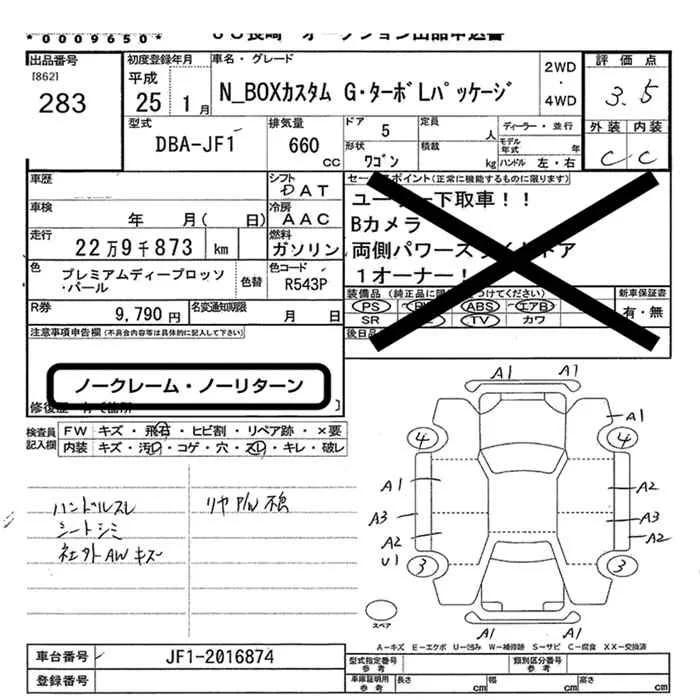 *0009650*
ＪＵ長崎 オークション出品申込書
出品番号
[862]
283
初度登録年月
平成
25 1月
車名・グレード
N_BOXカスタム G・ターボLパッケージ
2WD
・
4WD
評価点
3.5
外装 内装
C C
型式
DBA-JF1
排気量
660
CC
ドア 5
定員 人
形状
ワゴン
積載 kg
ディーラー・並行
モデル年式 年
ハンドル 左・右
車歴
シフト
DAT
車検
年 月( 日)
冷房
AAC
走行
22万9千873 km
燃料
ガソリン
色
プレミアムディープロッソ
・パール
色替
色コード
R543P
R券
9,790円
名変通知期限
月 日
セールスポイント(正常に機能するものに限ります)
ユーザー下取車！！
Bカメラ
両側パワースライドドア
1オーナー！
装備品
PS
ABS
エアB
SR
TV
カワ
新車保証書
有・無
後日品
注意事項申告欄(不具合内容等は具体的に記入して下さい)
ノークレーム・ノーリターン
検査員
記入欄
FW キズ・飛石・ヒビ割・リペア跡・×要
内装 キズ・汚レ・コゲ・穴・スレ・キレ・破レ
ハンドルスレ
シートシミ
社外AWキズ
リヤP/W不良
A1 A1
A1
4 4
A1 A2
A3 A3
A2 A2
U1
3 3
A1 A1
スペア
A－キズ E－エクボ U－凹み W－補修跡 S－サビ C－腐食 XX－交換済
車台番号
JF1-2016874
登録番号
型式指定番号
参考
類別区分番号
参考
車庫証明用
参考
長さ cm
幅 cm
高さ cm